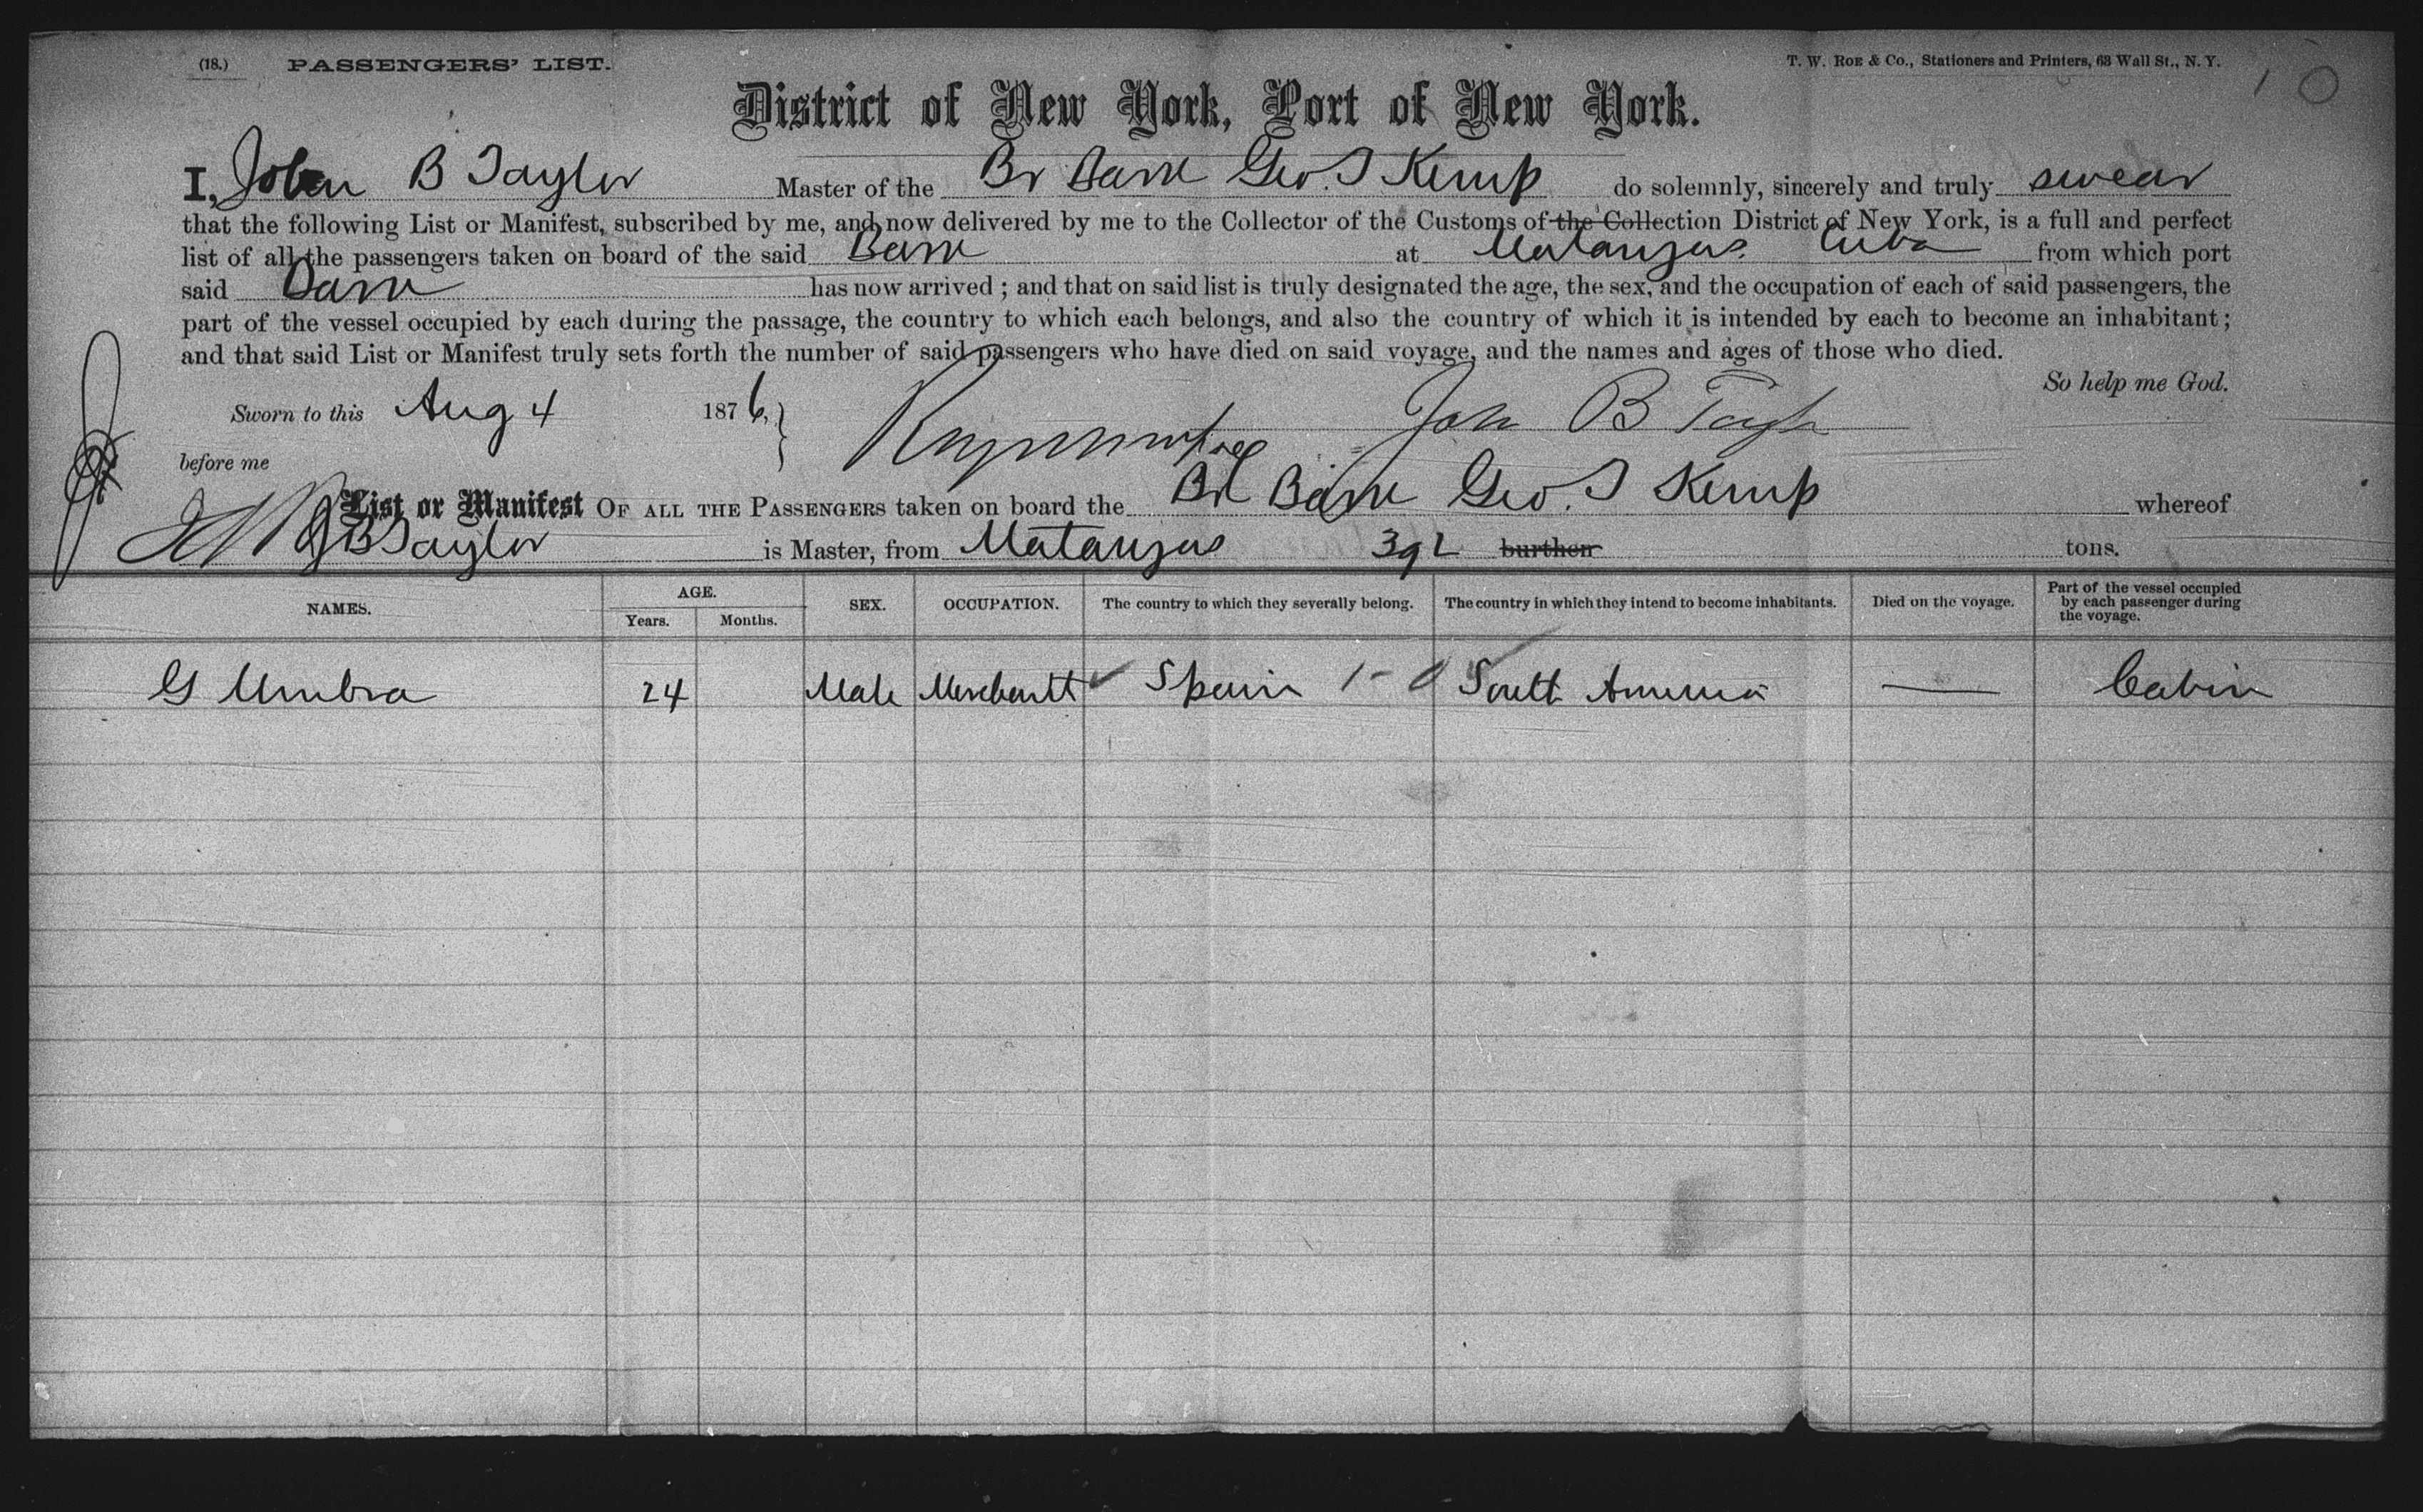 (18.) PASSENGERS' LIST. T. W. Roe & Co., Stationers and Printers, 63 Wall St., N. Y.
1 0
District of New York, Port of New York.
I, John B Taylor Master of the Br Bark Geo. T Kemp do solemnly, sincerely and truly swear
that the following List or Manifest, subscribed by me, and now delivered by me to the Collector of the Customs of the Collection District of New York, is a full and perfect
list of all the passengers taken on board of the said Bark at Matanzas Cuba from which port
said Bark has now arrived; and that on said list is truly designated the age, the sex, and the occupation of each of said passengers, the
part of the vessel occupied by each during the passage, the country to which each belongs, and also the country of which it is intended by each to become an inhabitant;
and that said List or Manifest truly sets forth the number of said passengers who have died on said voyage, and the names and ages of those who died.
So help me God.
Sworn to this Aug 4 1876. John B Taylor
before me
List or Manifest OF ALL THE PASSENGERS taken on board the Br Bark Geo. T Kemp whereof
J B Taylor is Master, from Matanzas 392 burthen tons.
NAMES. AGE. Years. Months. SEX. OCCUPATION. The country to which they severally belong. The country in which they intend to become inhabitants. Died on the voyage. Part of the vessel occupied by each passenger during the voyage.
G Umbra 24 Male Merchant Spain 1-0 South America — Cabin